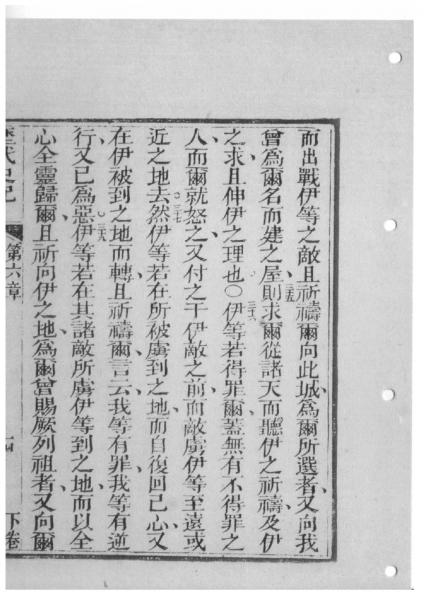 而出戰伊等之敵且祈禱爾向此城、爲爾所選者、又向我
曾爲爾名而建之屋、三五則求爾從諸天而聽伊之祈禱、及伊
之求、且伸伊之理也○三六伊等若得罪爾、蓋無有不得罪之
人、而爾就怒之、又付之于伊敵之前、而敵虜伊等至遠或
近之地去、三七然伊等若在所被虜到之地、而自復回己心、又
在伊被到之地而轉、且祈禱爾言云、我等有罪、我等有逆
行、又已爲惡、三八伊等若在其諸敵所虜伊等到之地、而以全
心全靈歸爾、且祈向伊之地、爲爾曾賜厥列祖者、又向爾
歷代史記 第六章 下卷